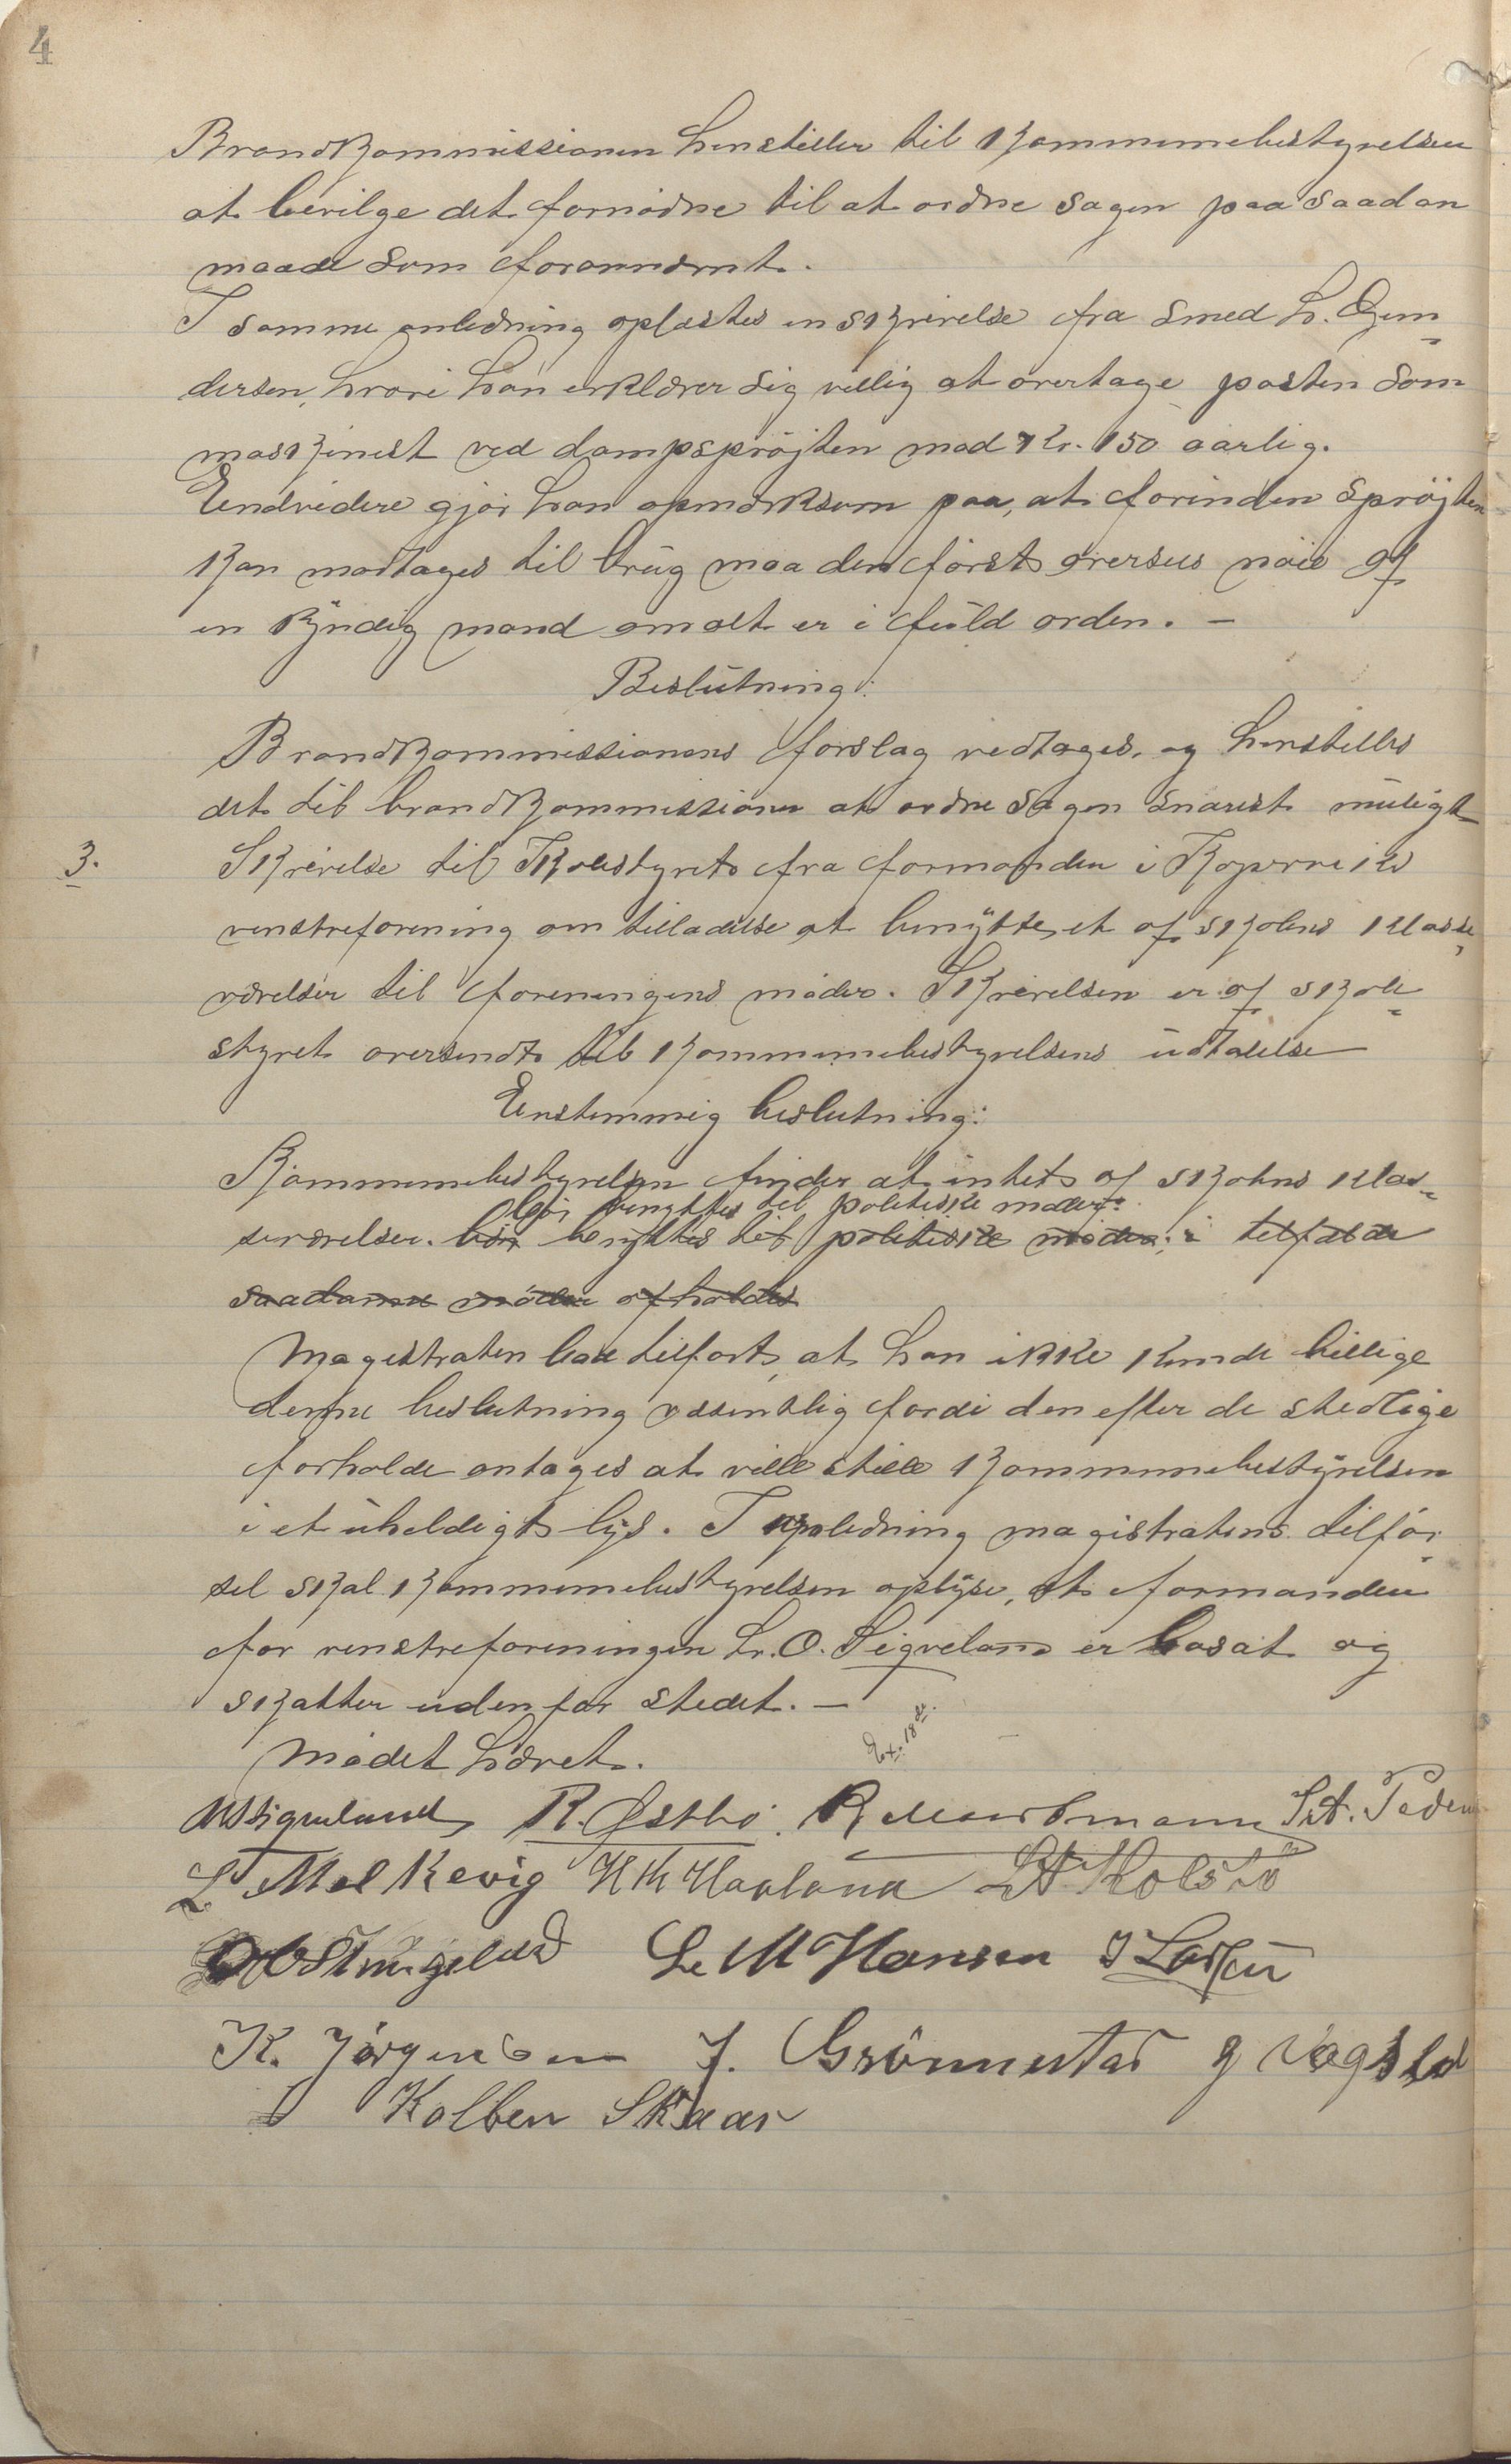 4
Brandkommissionen henstiller til kommunebestyrelsen
at bevilge det fornødne til at ordne sagen paa saadan
maade som forannævnt.
I samme anledning oplæstes en skrivelse fra smed H. Gun-
dersen, hvori han erklærer sig villig at overtage posten som
maskinist ved dampsprøjten mod kr. 150 aarlig.
Endvidere gjør han opmærksom paa, at forinden sprøjten
kan modtages til brug maa den først oversees nøie af
en kyndig mand om alt er i fuld orden. —
Beslutning:
Brandkommissionens forslag vedtages, og henstilles
det til brandkommissionen at ordne sagen snarest muligt
3. Skrivelse til Skolestyret fra formanden i Kopervik
venstreforening om tilladelse at benytte et af skolens klasse-
værelser til foreningens møder. Skrivelsen er af skole-
styret oversendt til kommunebestyrelsens udtalelse
Enstemmig beslutning:
Kommunebestyrelsen finder at intet af skolens klas-
bør benyttes til politiske møder.
seværelser. bør benyttes til politiske møder, i tilfælde
saadanne møder afholdes
Magistraten bad tilført, at han ikke kunde billige
denne beslutning væsentlig fordi den efter de stedlige
forholde antages at ville stille kommunebestyrelsen
i et uheldigt lys. I anledning magistratens tilfør-
sel skal kommunebestyrelsen oplyse, at formanden
for venstreforeningen hr. O. Sigveland er bosat og
skatter udenfor stedet. —
Ex. 18
Mødet hævet.
R. Østhø. St. Peder
L Melkevig H M Haaland
L. M Hansen J Larsen
K. Jørgensen J. Grønnestad
Kolben Skaar